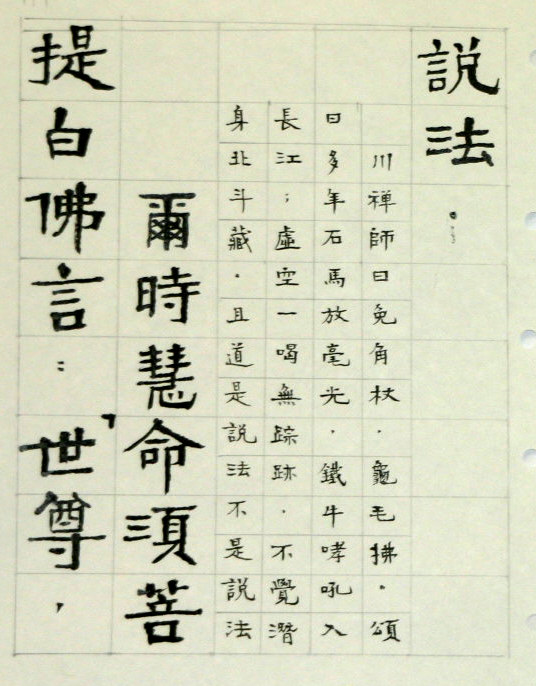 說法。
川禪師曰兔角杖．龜毛拂．頌
曰多年石馬放毫光．鐵牛哮吼入
長江；虛空一喝無踪跡．不覺潛
身北斗藏．且道是說法不是說法
爾時慧命須菩
提白佛言：「世尊，